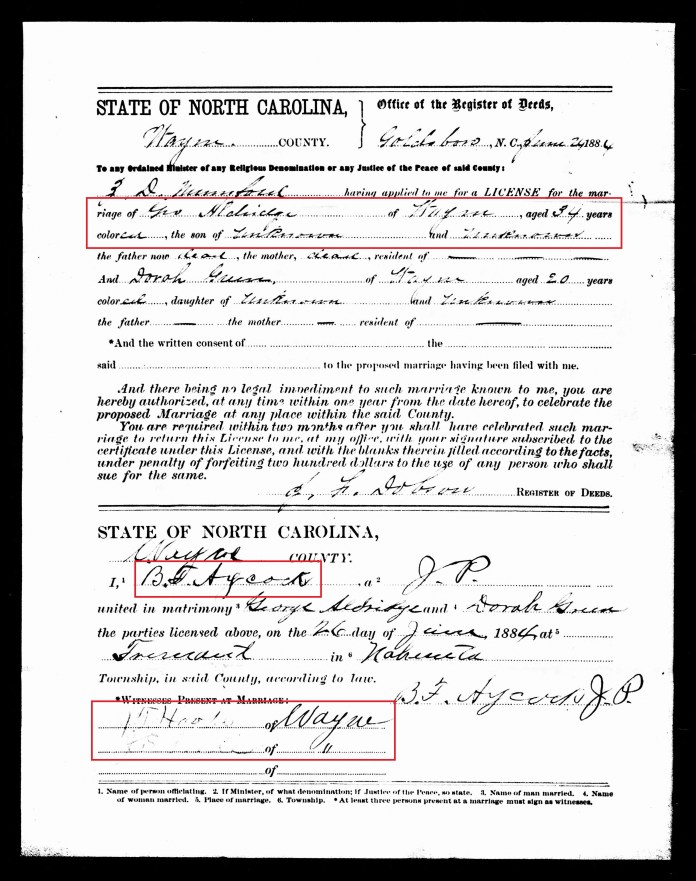 STATE OF NORTH CAROLINA, Office of the Register of Deeds,
Wayne COUNTY. Goldsboro, N. C., June 1884
To any Ordained Minister of any Religious Denomination or any Justice of the Peace of said County:
D. having applied to me for a LICENSE for the mar-
riage of Geo Aldridge of Wayne, aged 34 years
colored, the son of Unknown and Unknown
the father now dead, the mother, dead, resident of
And Dorah Green, of Wayne aged 20 years
colored, daughter of Unknown and Unknown
the father the mother resident of
*And the written consent of the
said to the proposed marriage having been filed with me.
And there being no legal impediment to such marriage known to me, you are
hereby authorized, at any time within one year from the date hereof, to celebrate the
proposed Marriage at any place within the said County.
You are required within two months after you shall have celebrated such mar-
riage to return this License to me, at my office, with your signature subscribed to the
certificate under this License, and with the blanks therein filled according to the facts,
under penalty of forfeiting two hundred dollars to the use of any person who shall
sue for the same.
Dobson REGISTER OF DEEDS.
STATE OF NORTH CAROLINA,
Wayne COUNTY.
I,¹ B.F. Aycock, a² J. P.
united in matrimony³ George Aldridge and⁴ Dorah Green
the parties licensed above, on the 26 day of June, 1884, at⁵
Fremont in⁶ Nahunta
Township, in said County, according to law.
B.F. Aycock J.P.
*WITNESSES PRESENT AT MARRIAGE:
of Wayne
of "
of
1. Name of person officiating. 2. If Minister, of what denomination; if Justice of the Peace, so state. 3. Name of man married. 4. Name
of woman married. 5. Place of marriage. 6. Township. *At least three persons present at a marriage must sign as witnesses.